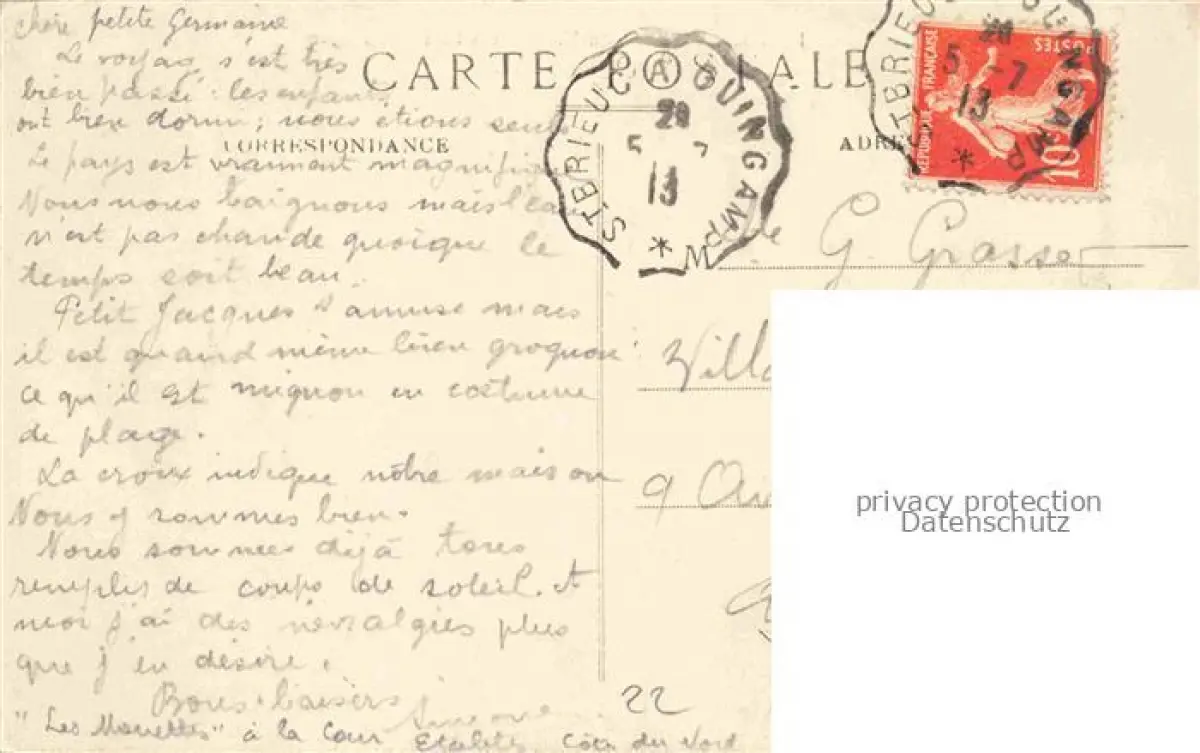 Chère petite Germaine
Le voyag s'est très
bien passé : les enfants
ont bien dormi ; nous étions seuls
Le pays est vraiment magnifique
Nous nous baignons mais l'eau
n'est pas chaude quoique le
temps soit beau.
Petit Jacques s'amuse mais
il est quand même bien grognon
ce qu'il est mignon en costume
de plage.
La croix indique nôtre maison
Nous y sommes bien.
Nous sommes déjà tous
remplis de coups de soleil. et
moi j'ai des névralgies plus
que j'en désire.
Bons baisers
Simone
"Les Mouettes" à la Cour Etables Côtes du Nord
CARTE POSTALE
CORRESPONDANCE
ST BRIEUC À GUINGAMP
20
5 7
13
*
ADRE
ST BRIEUC GUINGAMP
20
5 -7
13
*
REPUBLIQUE FRANÇAISE
POSTES
10
Mlle G. Grasser
Villa
9 Ave
22
privacy protection
Datenschutz